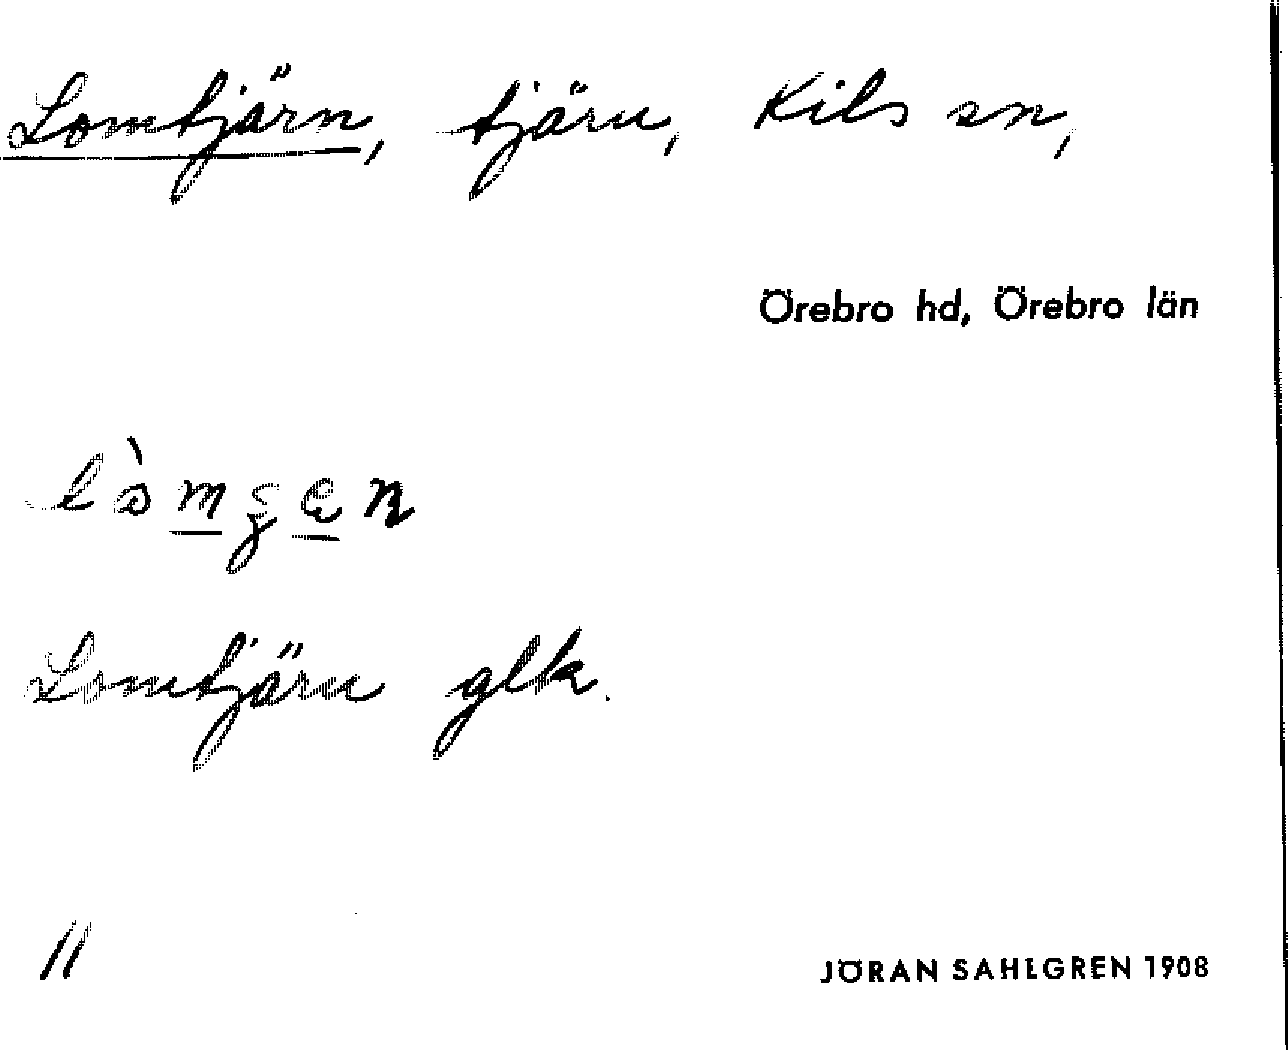 Lomtjärn, tjärn, Kils sn,
Örebro hd, Örebro län
Lomtjärn glk.
11
JÖRAN SAHLGREN 1908